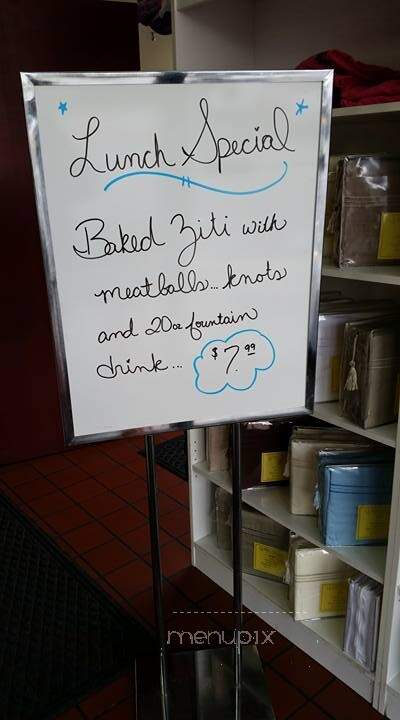 Lunch Special
Baked Ziti with
meatballs... knots
and 20oz fountain
drink... $7.99
menupix